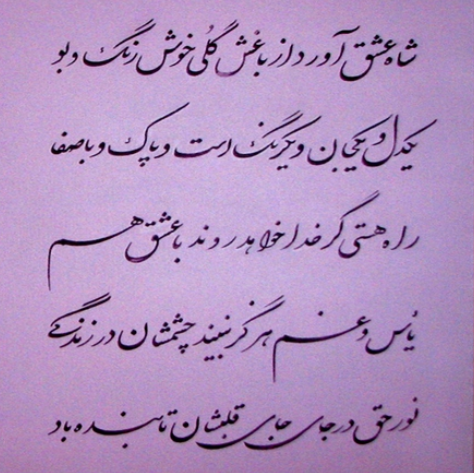 شاه عشق آورد از باغش گُلی خوش رنگ و بو
یکدل و یکجان و یکرنگ است و پاک و با صفا
راه هستی گر خدا خواهد روند با عشق هم
یأس و غم هرگز نبیند چشمشان در زندگی
نور حق در جای جای قلبشان تابنده باد